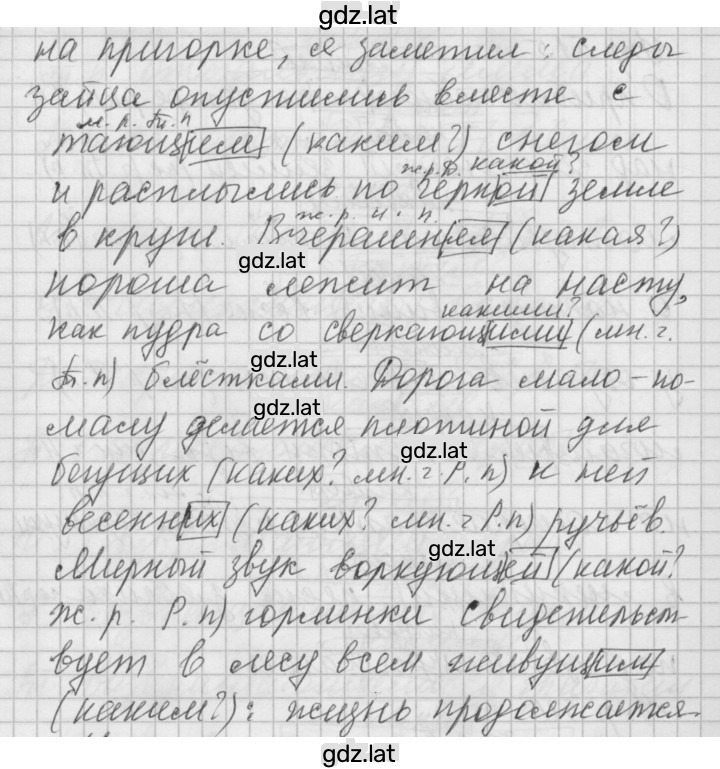 gdz.lat
на пригорке, я заметил: следы
зайца опустились вместе с
м. р. Тв. п
тающим (каким?) снегом
ж.р. Д. какой?
и расплылись по чёрной земле
ж. р. и. п.
в круги. Вчерашняя (какая?)
gdz.lat
пороша лежит на насту,
какими?
как пудра со сверкающими (мн. ч.
gdz.lat
Тв. п) блёстками. Дорога мало-по-
gdz.lat
малу делается плотиной для
gdz.lat
бегущих (каких? мн. ч. Р. п) к ней
весенних (каких? мн. ч Р. п) ручьёв.
gdz.lat
Мирный звук воркующей (какой?
ж. р. Р. п) горлинки свидетельст-
вует в лесу всем живущим
(каким?): жизнь продолжается.
gdz.lat